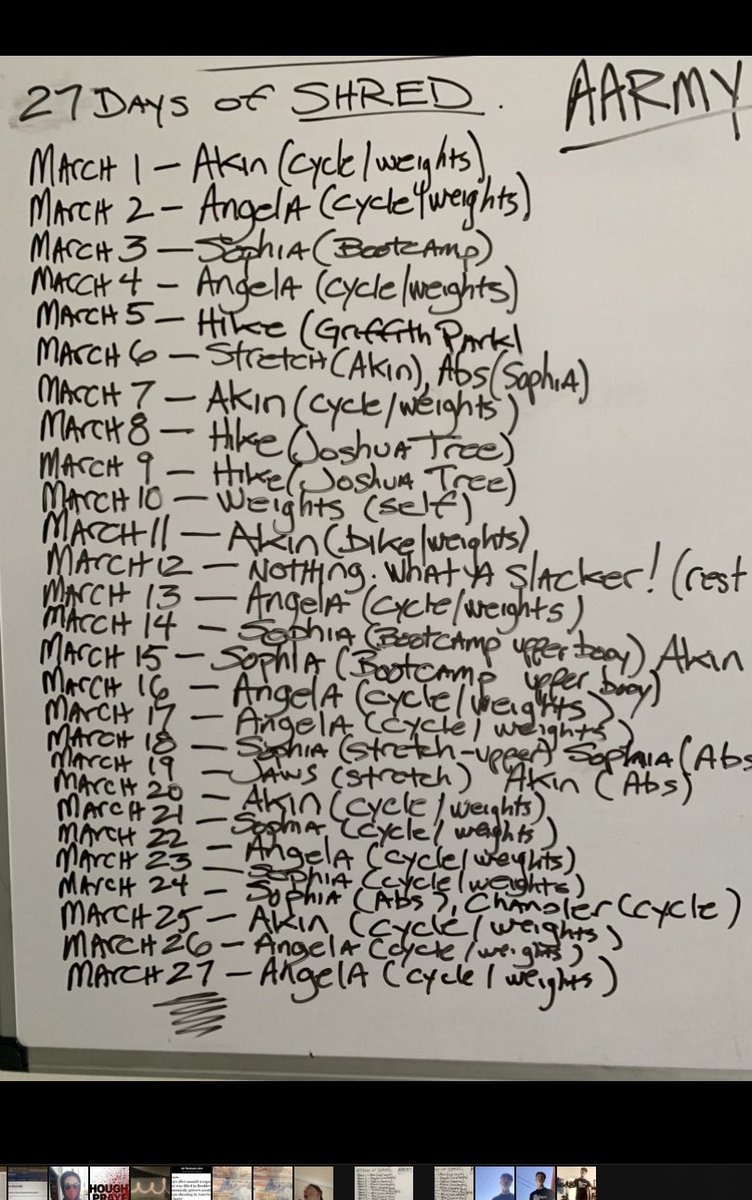 27 Days of SHRED. AARMY
MARCH 1 – Akin (cycle/weights)
MARCH 2 – AngelA (cycle/weights)
MARCH 3 – SophiA (BootcAmp)
MARCH 4 – AngelA (cycle/weights)
MARCH 5 – Hike (Griffith Park)
MARCH 6 – Stretch (Akin), Abs (SophiA)
MARCH 7 – Akin (cycle/weights)
MARCH 8 – Hike (Joshua Tree)
MARCH 9 – Hike (Joshua Tree)
MARCH 10 – Weights (self)
MARCH 11 – Akin (bike/weights)
MARCH 12 – Nothing. What ya slacker! (rest
MARCH 13 – AngelA (cycle/weights)
MARCH 14 – SophiA (Bootcamp upper body) Akin
MARCH 15 – SophiA (Bootcamp upper body)
MARCH 16 – AngelA (cycle/weights)
MARCH 17 – AngelA (cycle/weights)
MARCH 18 – SophiA (stretch-upper) SophiA (Abs
MARCH 19 – JAWS (stretch) Akin (Abs)
MARCH 20 – Akin (cycle/weights)
MARCH 21 – SophiA (cycle/weights)
MARCH 22 – AngelA (cycle/weights)
MARCH 23 – SophiA (cycle/weights)
MARCH 24 – SophiA (Abs), Chandler (cycle)
MARCH 25 – Akin (cycle/weights)
MARCH 26 – AngelA (cycle/weights)
MARCH 27 – AngelA (cycle/weights)
HOUGH